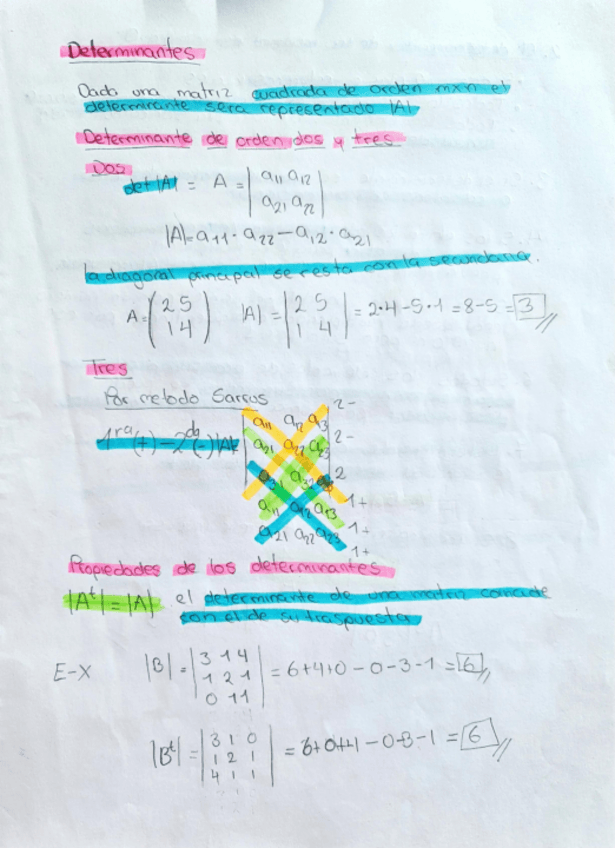 Determinantes
Dada una matriz cuadrada de orden mxn el
determinante sera representado |A|
Determinante de orden dos y tres
Dos
det |A| = A = | a11 a12
a21 a22 |
|A|=a11· a22 - a12 · a21
la diagonal principal se resta con la secundaria.
A=(2 5
1 4) |A| = |2 5
1 4| = 2·4-5·1 = 8-5 = 3
Tres
Por metodo Sarrus
1ra(+) - 2da(-) |A|=
a11 a12 a13 2-
a21 a22 a23 2-
a31 a32 2
a11 a12 a13 1+
a21 a22 a23 1+
1+
Propiedades de los determinantes
|At|=|A| el determinante de una matriz coincide
con el de su traspuesta
E-X |B| = | 3 1 4
1 2 1
0 1 1 | = 6+4+0-0-3-1 = 6
|Bt| = | 3 1 0
1 2 1
4 1 1 | = 6+0+4-0-3-1 = 6